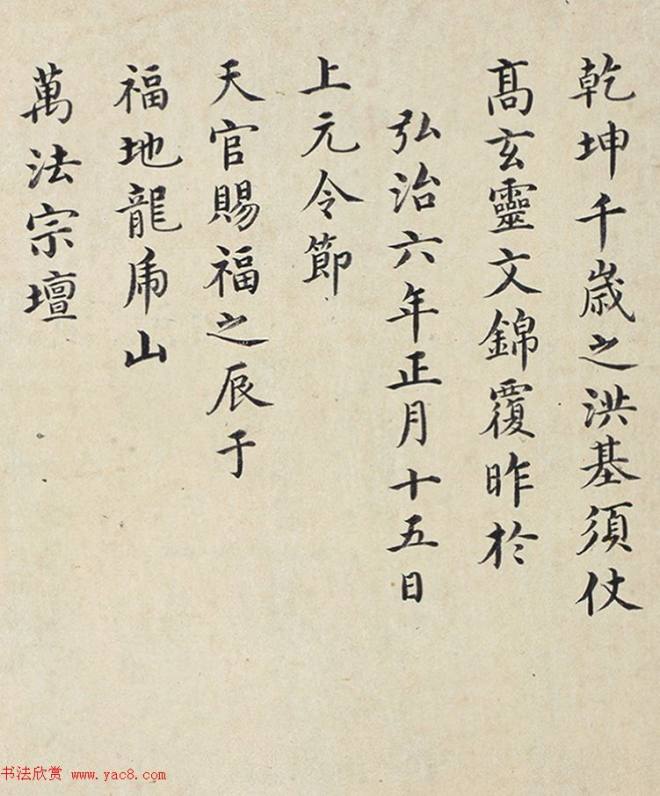 乾坤千歳之洪基須仗
高玄靈文錦覆昨於
弘治六年正月十五日
上元令節
天官賜福之辰于
福地龍虎山
萬法宗壇
书法欣赏 www.yac8.com